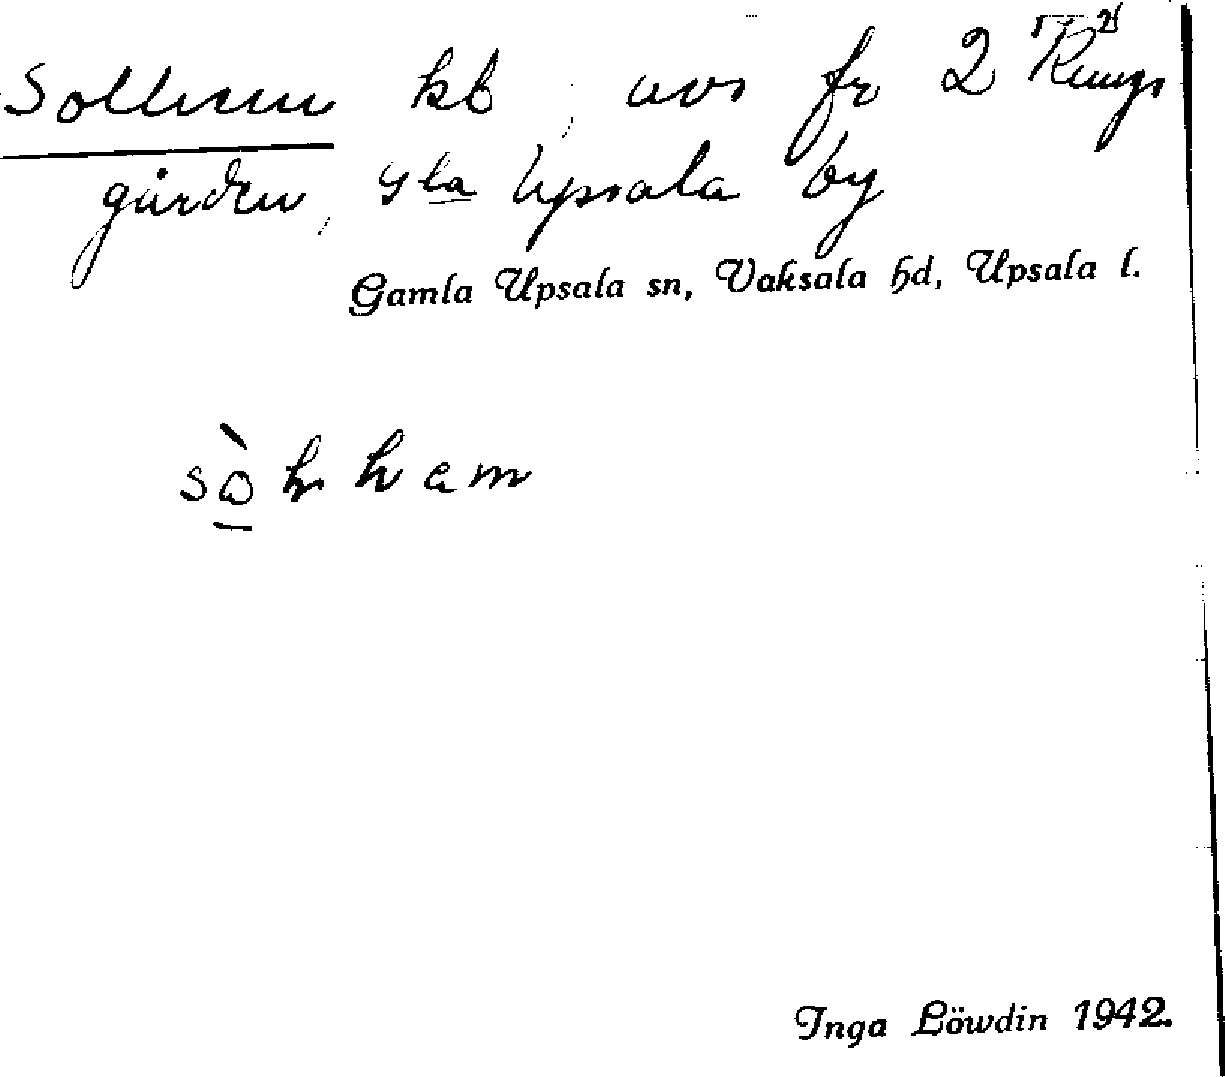 Solhem kb, avs fr 2 Kungs
gården, Gla Upsala by
Gamla Upsala sn, Vaksala hd, Upsala l.
Inga Löwdin 1942.